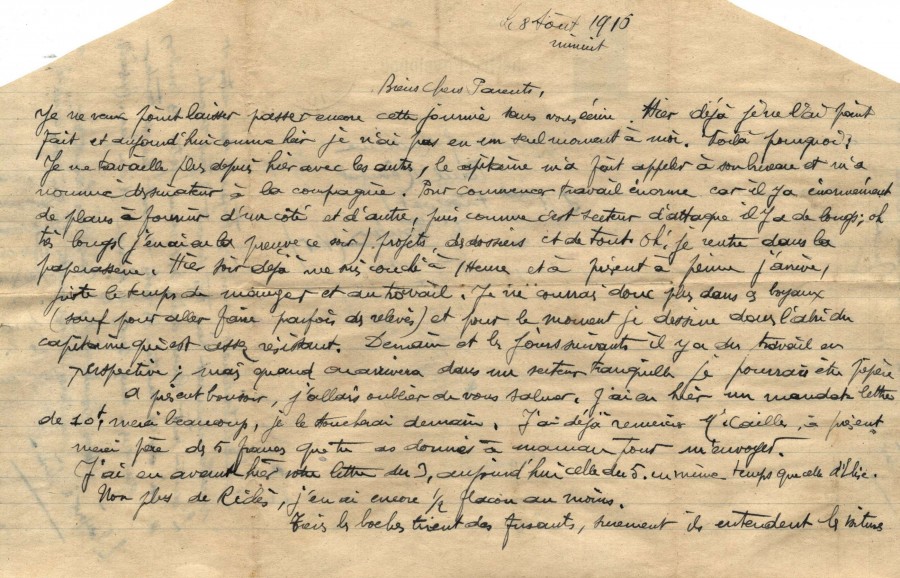 le 8 Août 1915
minuit
Biens chers Parents,
Je ne veux point laisser passer encore cette journée sans vous écrire. Hier déjà je ne l'ai point
fait et aujourd'hui comme hier je n'ai pas eu un seul moment à moi. Voilà pourquoi :
Je ne travaille plus depuis hier avec les autres, le capitaine m'a fait appeler à son bureau et m'a
nommé dessinateur à la compagnie. Pour commencer travail énorme car il y a énormément
de plans à fournir d'un côté et d'autre, puis comme c'est secteur d'attaque il y a de longs, oh
très longs (j'en ai eu la preuve ce soir) projets, des dossiers et de tout. Oh! je rentre dans la
paperasserie. Hier soir déjà me suis couché à 1 heure et à présent à peine j'arrive,
juste le temps de manger et au travail. Je ne courrai donc plus dans les boyaux
(sauf pour aller faire parfois des relevés) et pour le moment je dessine dans l'abri du
capitaine qui est assez résistant. Demain et les jours suivants il y a du travail en
perspective ; mais quand on arrivera dans un secteur tranquille je pourrais être pépère
A présent bonsoir, j'allais oublier de vous saluer. J'ai eu hier un mandat lettre
de 10f, merci beaucoup, je le toucherai demain. J'ai déjà remercié Mr Cailles, à présent
merci père des 5 francs que tu as donnés à maman pour m'envoyer.
J'ai eu avant hier votre lettre du 3, aujourd'hui celle du 5. en même temps que celle d'Elise.
Non plus de Riclès, j'en ai encore 1/2 flacon au moins.
les boches tirent des fusants, sûrement ils entendent les voitures